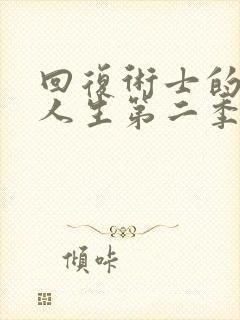 回復術士的
人生第二季
傾咔